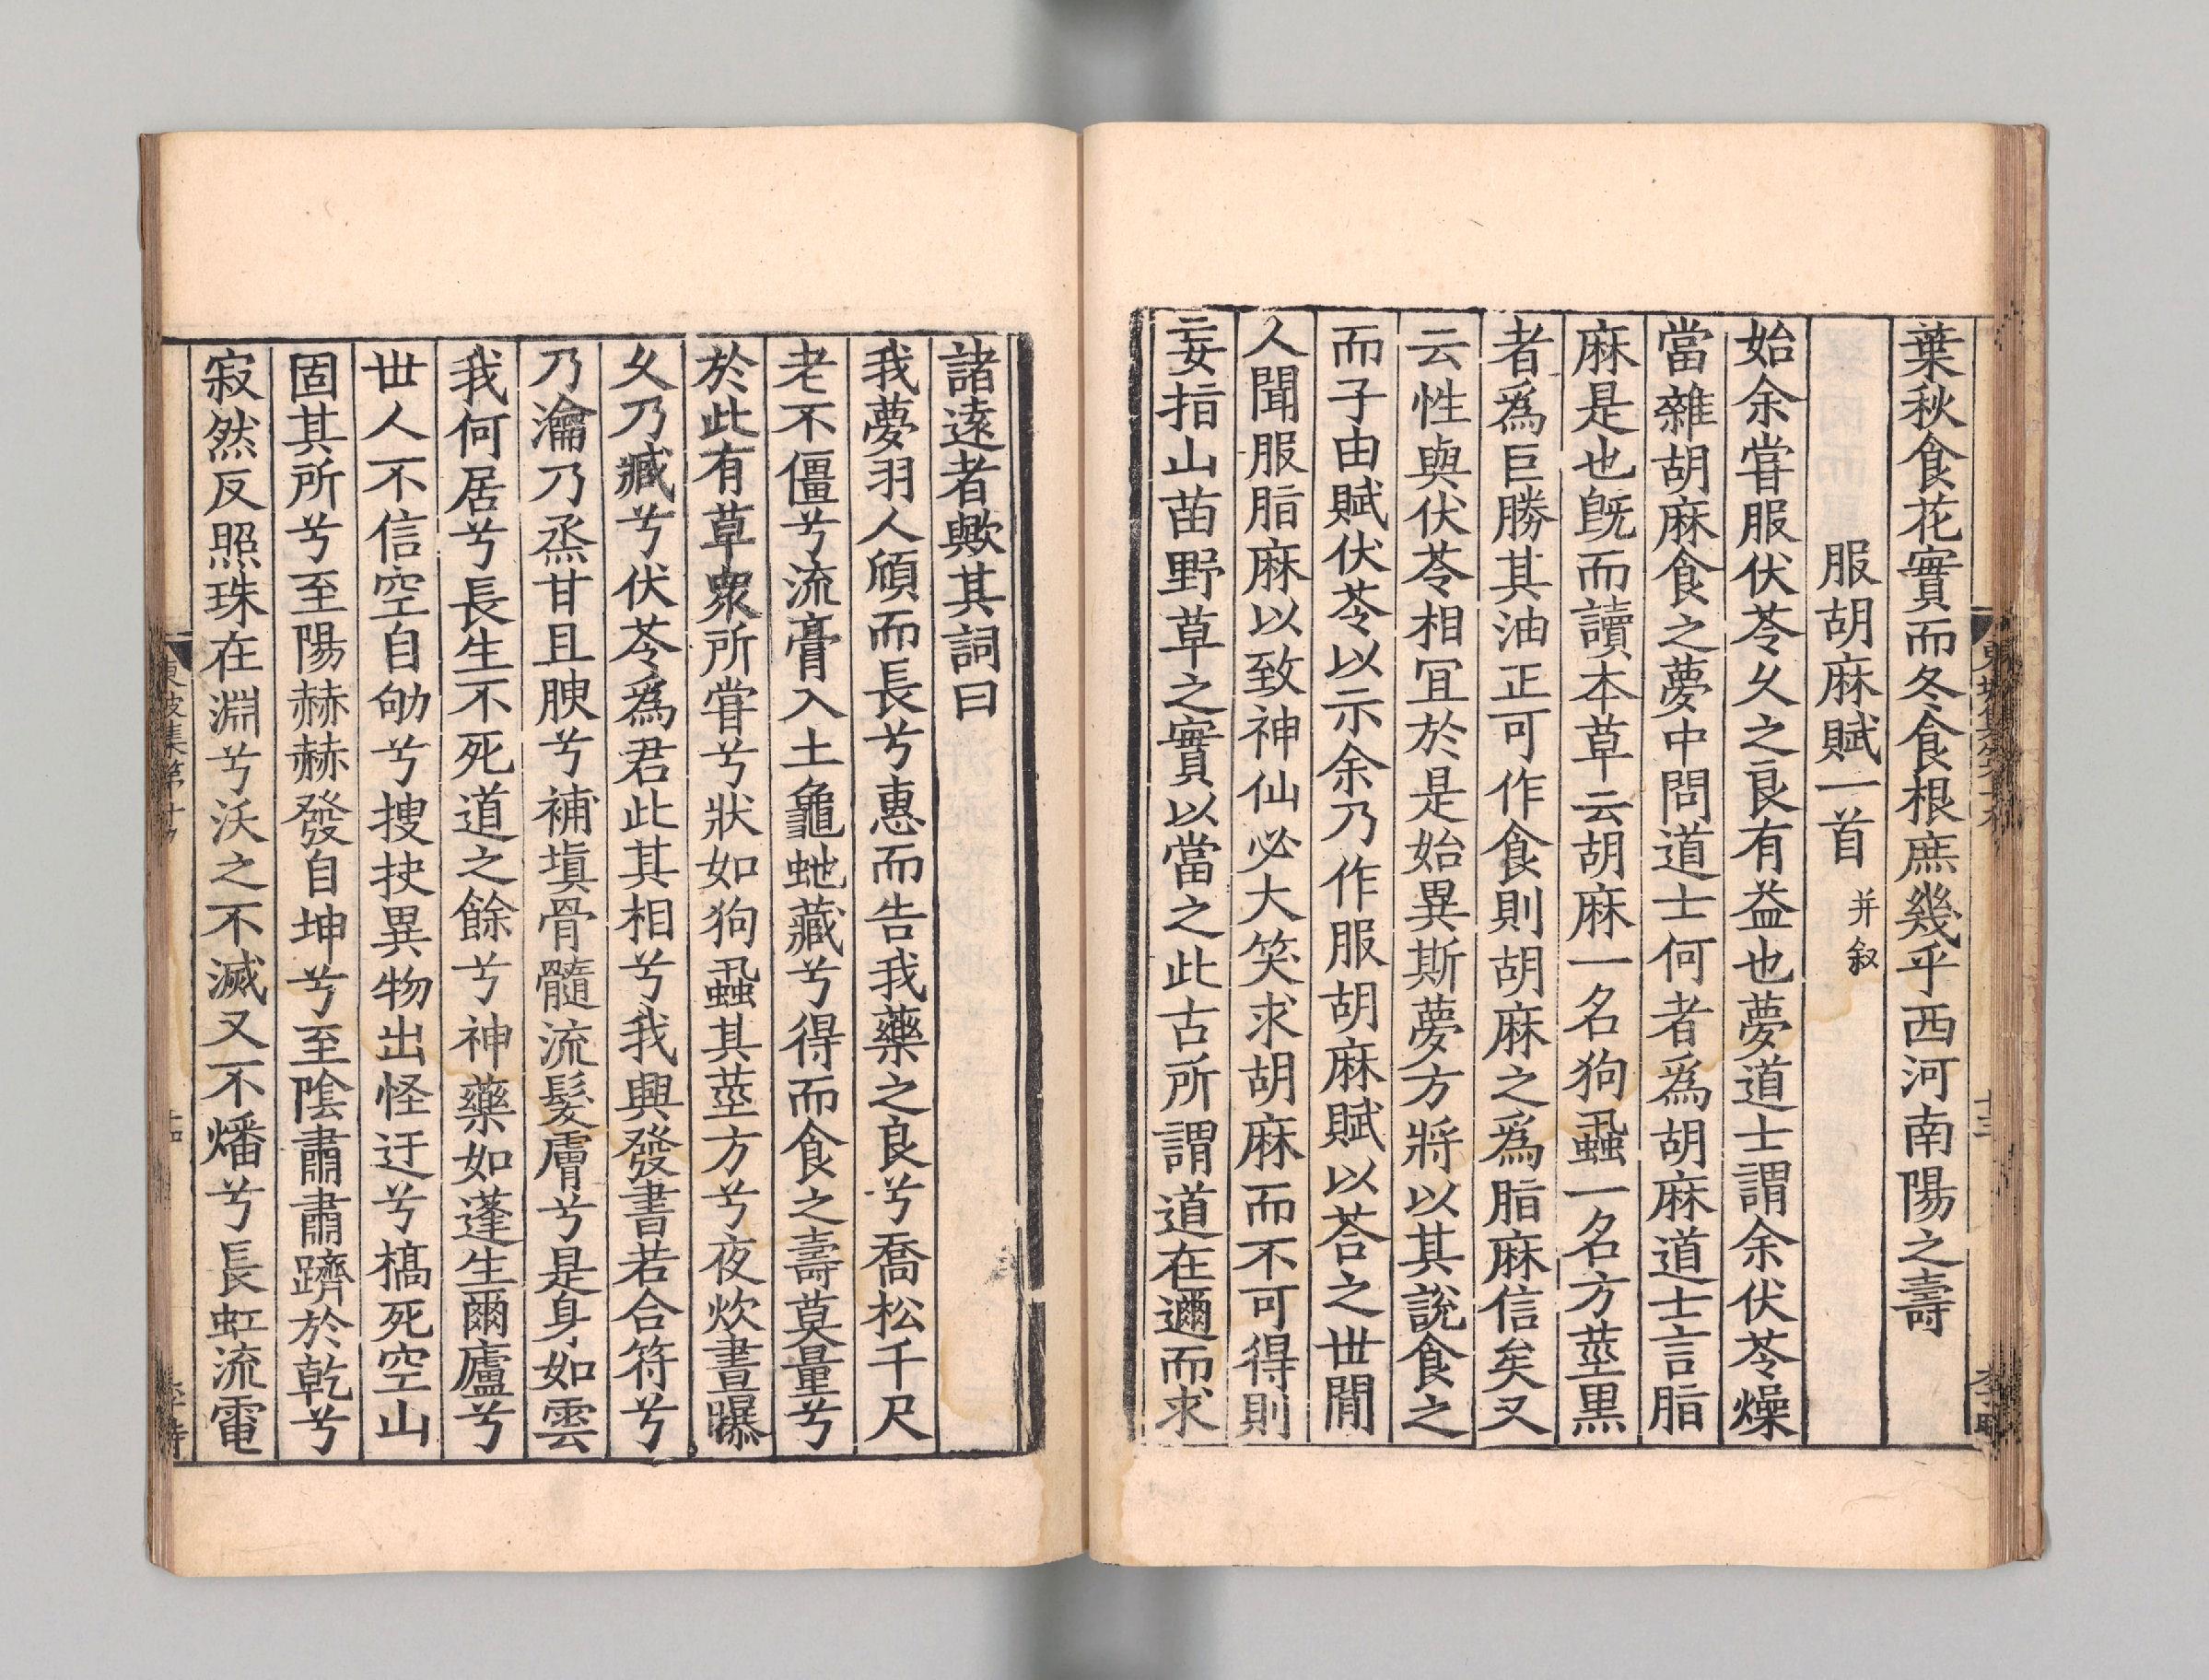 葉秋食花實而冬食根庶幾乎西河南陽之壽
服胡麻賦一首 并叙
始余甞服伏苓乆之良有益也夢道士謂余伏苓燥
當雜胡麻食之夢中問道士何者為胡麻道士言脂
麻是也旣而讀本草云胡麻一名狗蝨一名方莖黒
者為巨勝其油正可作食則胡麻之為脂麻信矣又
云性與伏苓相冝於是始異斯夢方將以其說食之
而子由賦伏苓以示余乃作服胡麻賦以荅之世間
人聞服脂麻以致神仙必大笑求胡麻而不可得則
妄指山苗野草之實以當之此古所謂道在邇而求
諸遠者歟其詞曰
我夢羽人頎而長兮惠而告我藥之良兮喬松千尺
老不僵兮流膏入土龜虵藏兮得而食之壽莫量兮
於此有草衆所甞兮狀如狗蝨其莖方兮夜炊晝曝
乆乃臧兮伏苓為君此其相兮我興發書若合符兮
乃瀹乃烝甘且腴兮補塡骨髓流髮膚兮是身如雲
我何居兮長生不死道之餘兮神藥如蓬生爾廬兮
世人不信空自劬兮搜抉異物出怪迂兮槁死空山
固其所兮至陽赫赫發自坤兮至陰肅肅躋於乾兮
寂然反照珠在淵兮沃之不滅又不燔兮長虹流電
東坡集第十九